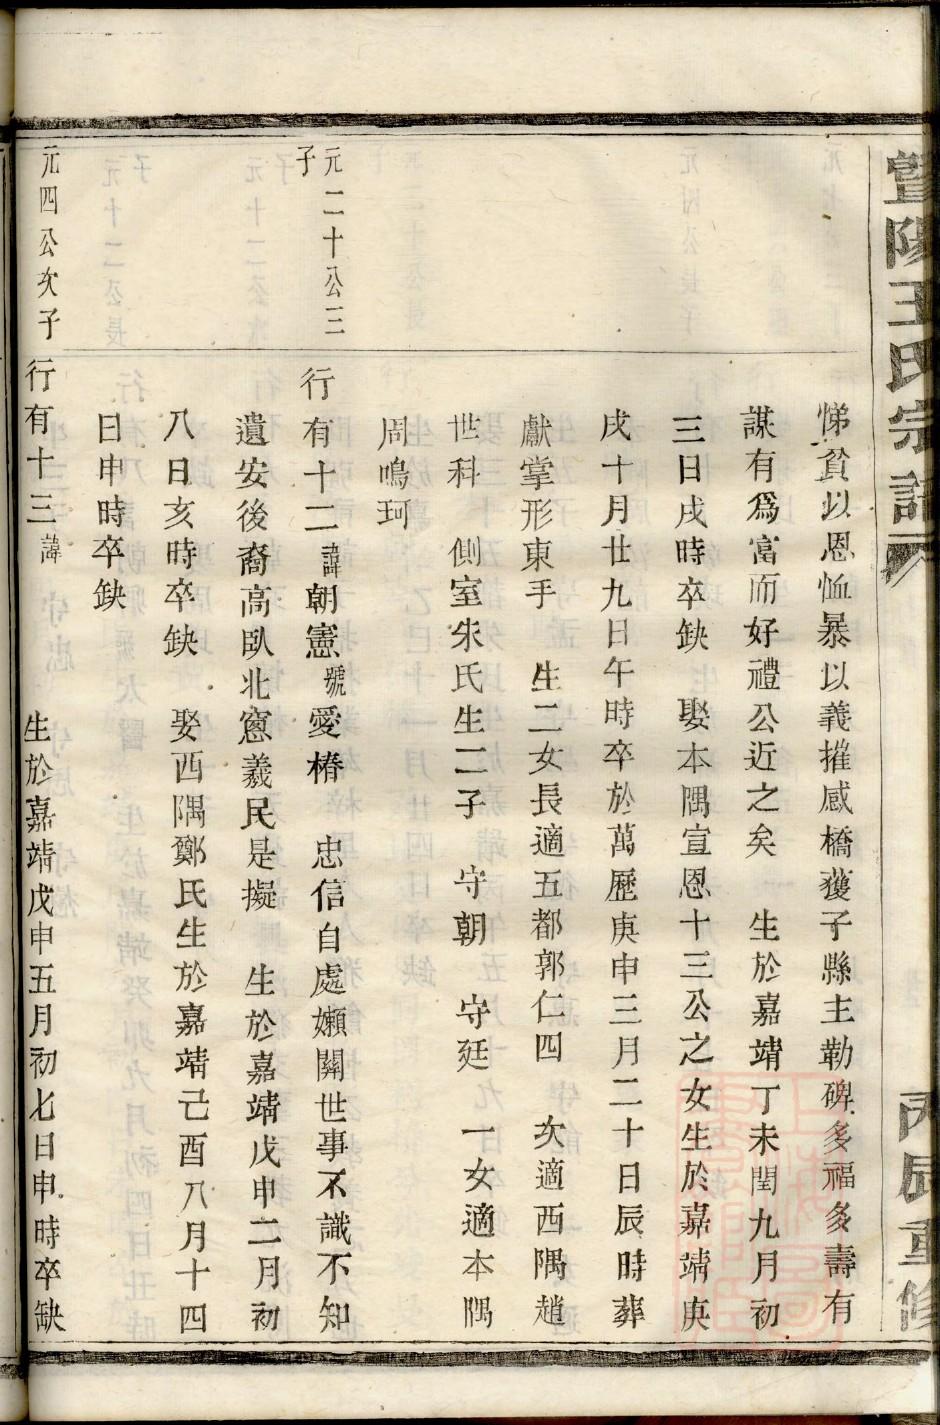 暨陽王氏宗譜
丙辰重修
悌貧以恩恤暴以義摧感橋獲子縣主勒碑多福多壽有
謀有爲富而好禮公近之矣 生於嘉靖丁未閏九月初
三日戌時卒缺 娶本隅宣恩十三公之女生於嘉靖庚
戌十月廿九日午時卒於萬歷庚申三月二十日辰時葬
獻掌形東手 生二女長適五都郭仁四 次適西隅趙
世科 側室朱氏生二子 守朝 守廷 一女適本隅
周鳴珂
元二十公三
子
行有十二諱朝憲號愛椿 忠信自處嬾關世事不識不知
遺安後裔高臥北窻羲民是擬 生於嘉靖戊申二月初
八日亥時卒缺 娶西隅鄭氏生於嘉靖己酉八月十四
日申時卒缺
元四公次子
行有十三諱 生於嘉靖戊申五月初七日申時卒缺